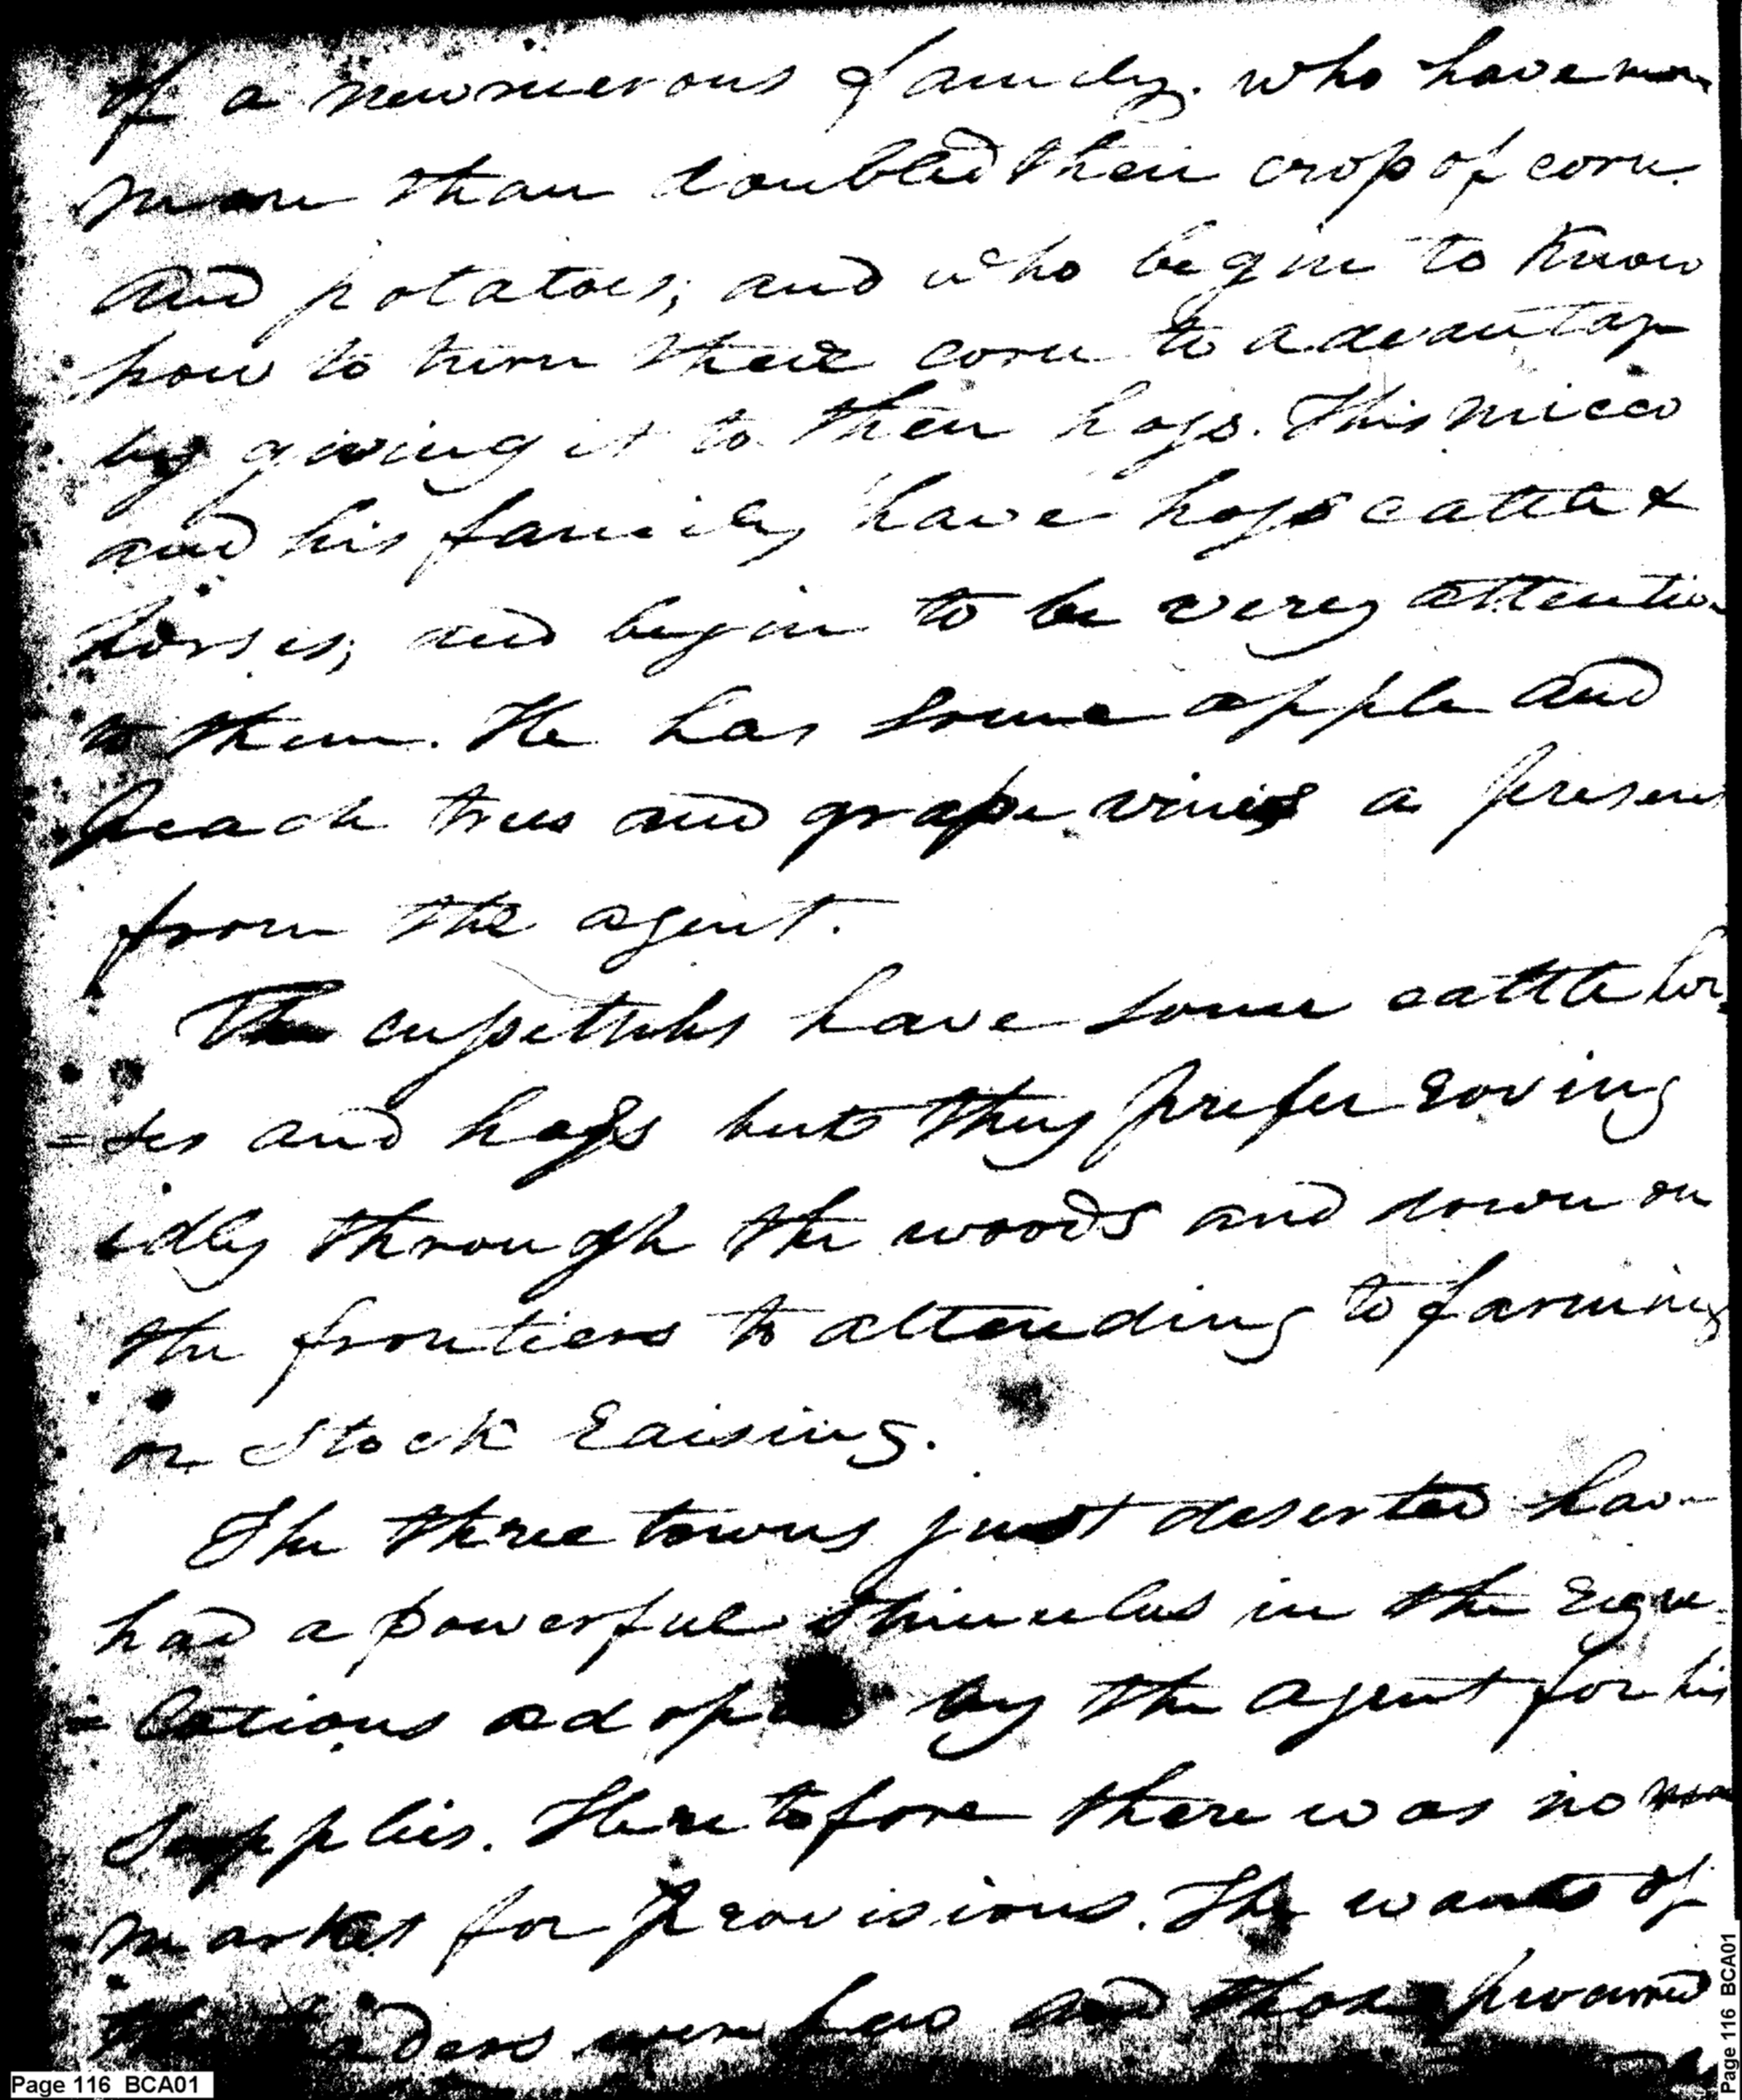 of a newmerous family. who have
more than doubled their crop of corn
and potatoes; and who begin to know
how to turn their corn to advantage
by giving it to their hogs. This micco
and his family have hogs cattle &
horses; and begin to be very attentive
to them. He has some apple and
peach trees and grape vines a present
from the agent.
The cussetuhs have some cattle hor
=ses and hogs but they prefer roving
idly through the woods and down on
the frontiers to attending to farming
or stock raising.
The three towns just deserted have
had a powerful stimulus in the regu
=lations adopted by the agent for his
supplies. Heretofore there was no
market for provisions. The wants of
the traders were few and those procured
Page 116 BCA01
Page 116 BCA01